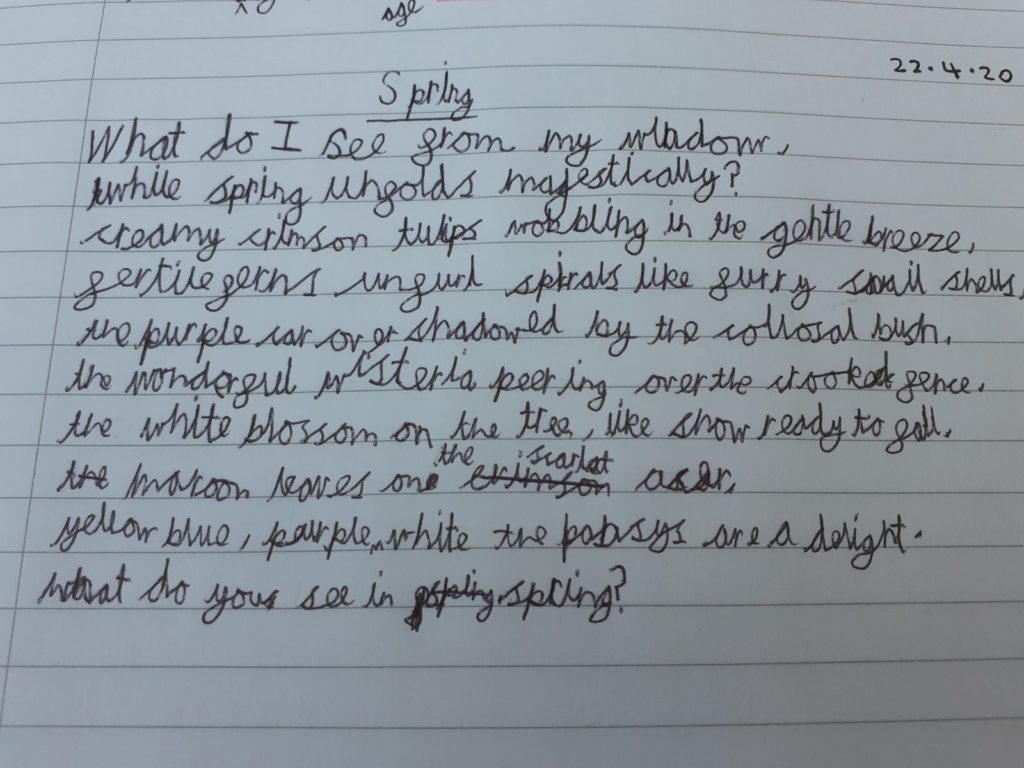 age
22.4.20
Spring
What do I see from my window,
while spring unfolds majestically?
creamy crimson tulips wobbling in the gentle breeze,
fertile ferns unfurl spirals like furry snail shells,
the purple car overshadowed by the collosal bush.
the wonderful wisteria peering over the crooked fence.
the white blossom on the tree, like snow ready to fall.
the maroon leaves on the scarlet acer,
yellow blue, purple, white the pansys are a delight.
what do you see in spring?